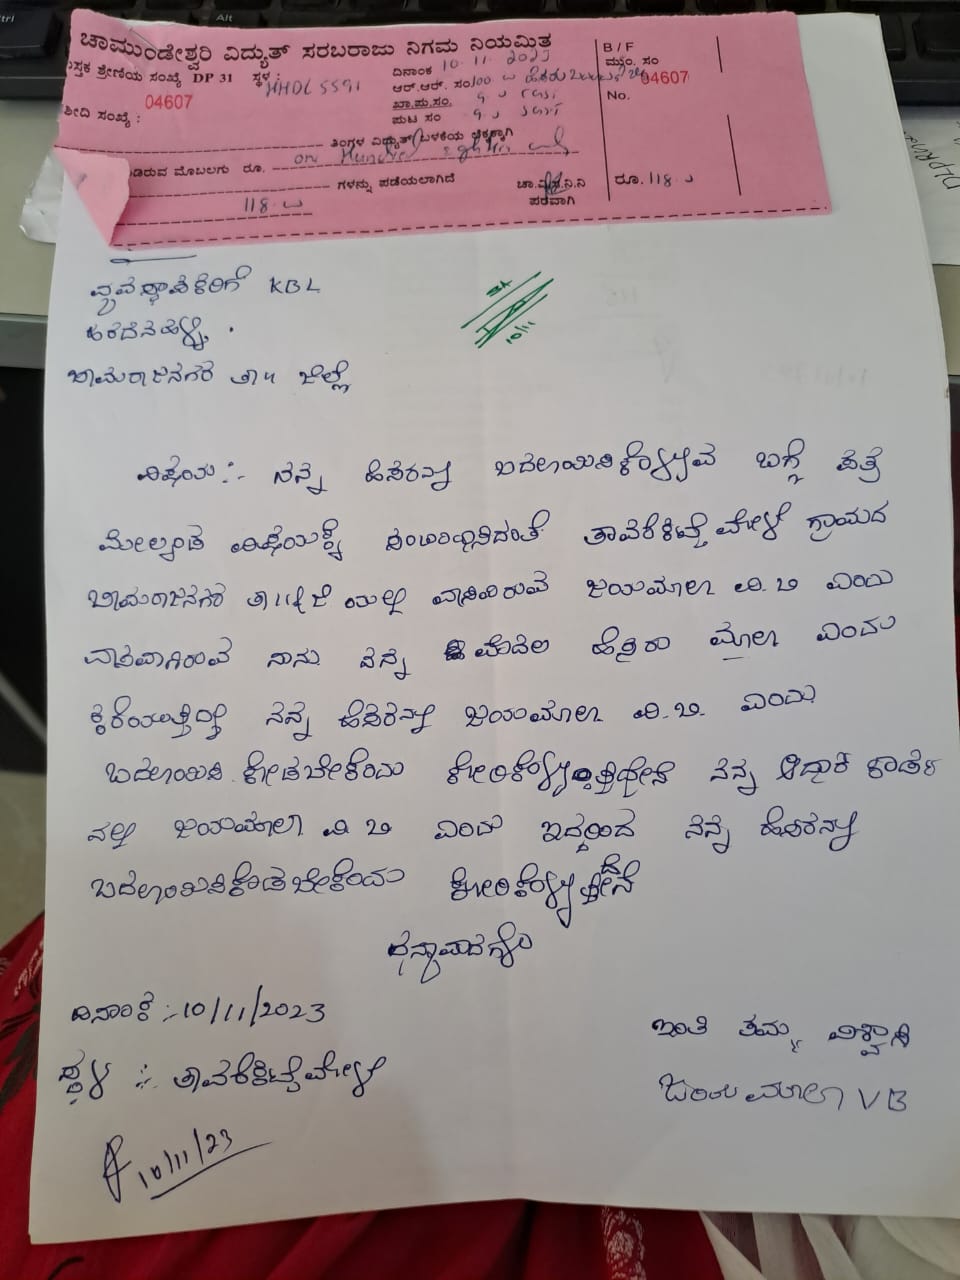 ಚಾಮುಂಡೇಶ್ವರಿ ವಿದ್ಯುತ್ ಸರಬರಾಜು ನಿಗಮ ನಿಯಮಿತ
ಪುಸ್ತಕ ಶ್ರೇಣಿಯ ಸಂಖ್ಯೆ DP 31 ಸ್ಥಳ : HHDL5591
ದಿನಾಂಕ 10.11.2023
ಆರ್.ಆರ್. ಸಂ
04607
ಖಾ.ಪು.ಸಂ.
ಪುಟ ಸಂ
ರಶೀದಿ ಸಂಖ್ಯೆ :
ತಿಂಗಳ ವಿದ್ಯುತ್ ಬಳಕೆಯ
ಮೊಬಲಗು ರೂ. one Hundred eighteen only
ಗಳನ್ನು ಪಡೆಯಲಾಗಿದೆ
118
ಪರವಾಗಿ
B / F
ಮುಂ. ಸಂ
04607
No.
ರೂ. 118
ವ್ಯವಸ್ಥಾಪಕರಿಗೆ KBL
ಹರದನಹಳ್ಳಿ.
ಚಾಮರಾಜನಗರ ತಾ|| ಜಿಲ್ಲೆ
10/11
ವಿಷಯ :- ನನ್ನ ಹೆಸರನ್ನು ಬದಲಾಯಿಸಿಕೊಳ್ಳುವ ಬಗ್ಗೆ ಪತ್ರ
ಮೇಲ್ಕಂಡ ವಿಷಯಕ್ಕೆ ಸಂಬಂಧಿಸಿದಂತೆ ತಾವರೆಕಟ್ಟೆ ಮೋಳೆ ಗ್ರಾಮದ
ಚಾಮರಾಜನಗರ ತಾ||ಜಿ ಯಲ್ಲಿ ವಾಸವಿರುವ ಜಯಮಾಲಾ ವಿ.ಬಿ ಎಂಬ
ವಾಸವಾಗಿರುವ ನಾನು ನನ್ನ ಮೊದಲ ಹೆಸರು ಮಾಲಾ ಎಂದು
ಕರೆಯುತ್ತಿದ್ದು ನನ್ನ ಹೆಸರನ್ನು ಜಯಮಾಲಾ ವಿ.ಬಿ. ಎಂದು
ಬದಲಾಯಿಸಿ ಕೊಡಬೇಕೆಂದು ಕೋರಿಕೊಳ್ಳುತ್ತಿದ್ದೇನೆ ನನ್ನ ಆಧಾರ್ ಕಾರ್ಡಿ
ನಲ್ಲಿ ಜಯಮಾಲಾ ವಿ ಬಿ ಎಂದು ಇದ್ದುದರಿಂದ ನನ್ನ ಹೆಸರನ್ನು
ಬದಲಾಯಿಸಿಕೊಡಬೇಕೆಂದು ಕೋರಿಕೊಳ್ಳುತ್ತಿದ್ದೇನೆ
ಧನ್ಯವಾದಗಳು
ದಿನಾಂಕ :-10/11/2023
ಸ್ಥಳ :- ತಾವರೆಕಟ್ಟೆ ಮೋಳೆ
ಇಂತಿ ತಮ್ಮ ವಿಶ್ವಾಸಿ
ಜಯಮಾಲಾ VB
10/11/23